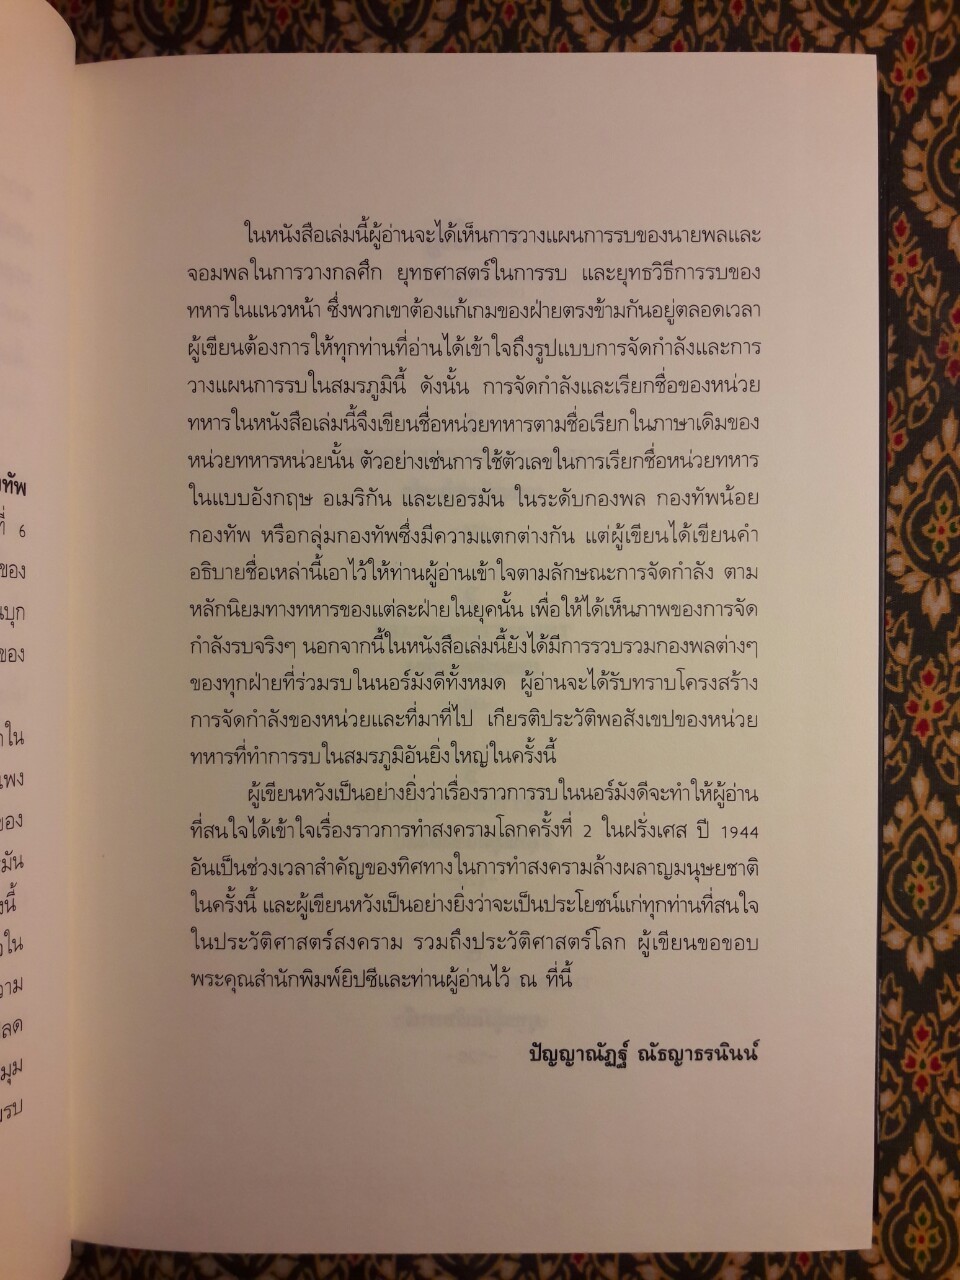 ในหนังสือเล่มนี้ผู้อ่านจะได้เห็นการวางแผนการรบของนายพลและ
จอมพลในการวางกลศึก ยุทธศาสตร์ในการรบ และยุทธวิธีการรบของ
ทหารในแนวหน้า ซึ่งพวกเขาต้องแก้เกมของฝ่ายตรงข้ามกันอยู่ตลอดเวลา
ผู้เขียนต้องการให้ทุกท่านที่อ่านได้เข้าใจถึงรูปแบบการจัดกำลังและการ
วางแผนการรบในสมรภูมินี้ ดังนั้น การจัดกำลังและเรียกชื่อของหน่วย
ทหารในหนังสือเล่มนี้จึงเขียนชื่อหน่วยทหารตามชื่อเรียกในภาษาเดิมของ
หน่วยทหารหน่วยนั้น ตัวอย่างเช่นการใช้ตัวเลขในการเรียกชื่อหน่วยทหาร
ในแบบอังกฤษ อเมริกัน และเยอรมัน ในระดับกองพล กองทัพน้อย
กองทัพ หรือกลุ่มกองทัพซึ่งมีความแตกต่างกัน แต่ผู้เขียนได้เขียนคำ
อธิบายชื่อเหล่านี้เอาไว้ให้ท่านผู้อ่านเข้าใจตามลักษณะการจัดกำลัง ตาม
หลักนิยมทางทหารของแต่ละฝ่ายในยุคนั้น เพื่อให้ได้เห็นภาพของการจัด
กำลังรบจริงๆ นอกจากนี้ในหนังสือเล่มนี้ยังได้มีการรวบรวมกองพลต่างๆ
ของทุกฝ่ายที่ร่วมรบในนอร์มังดีทั้งหมด ผู้อ่านจะได้รับทราบโครงสร้าง
การจัดกำลังของหน่วยและที่มาที่ไป เกียรติประวัติพอสังเขปของหน่วย
ทหารที่ทำการรบในสมรภูมิอันยิ่งใหญ่ในครั้งนี้
ผู้เขียนหวังเป็นอย่างยิ่งว่าเรื่องราวการรบในนอร์มังดีจะทำให้ผู้อ่าน
ที่สนใจได้เข้าใจเรื่องราวการทำสงครามโลกครั้งที่ 2 ในฝรั่งเศส ปี 1944
อันเป็นช่วงเวลาสำคัญของทิศทางในการทำสงครามล้างผลาญมนุษยชาติ
ในครั้งนี้ และผู้เขียนหวังเป็นอย่างยิ่งว่าจะเป็นประโยชน์แก่ทุกท่านที่สนใจ
ในประวัติศาสตร์สงคราม รวมถึงประวัติศาสตร์โลก ผู้เขียนขอขอบ
พระคุณสำนักพิมพ์ยิปซีและท่านผู้อ่านไว้ ณ ที่นี้
ปัญญาณัฏฐ์ ณัธญาธรนินน์